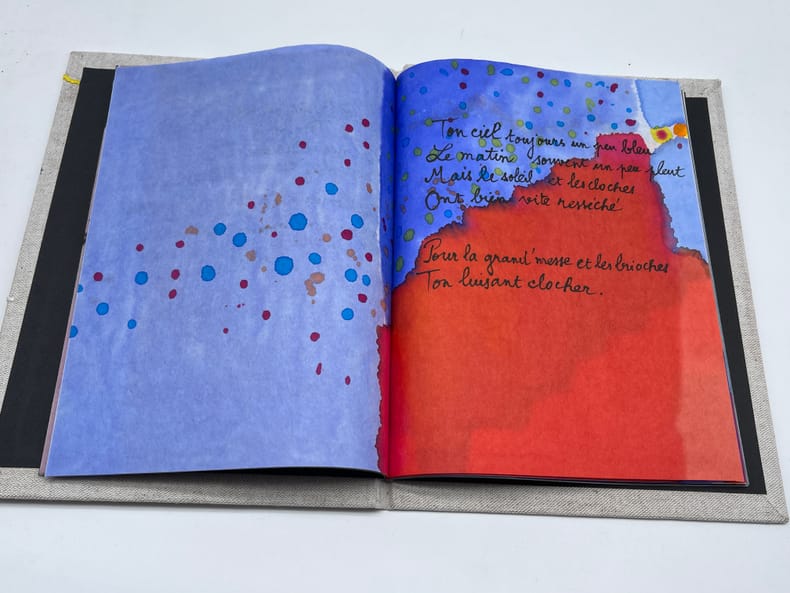 Ton ciel toujours un peu bleu
Le matin souvent un peu pleut
Mais le soleil et les cloches
Ont bien vite resséché
Pour la grand'messe et les brioches
Ton luisant clocher.